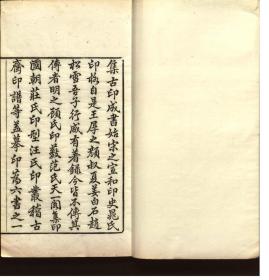 集古印成書始宋之宣和印史晁氏
印格自是王厚之顏叔夏姜白石趙
松雪吾子行咸有著錄今皆不傳其
傳者明之顧氏印藪范氏天一閣集印
國朝莊氏印型汪氏印叢稽古
齋印譜等蓋摹印為六書之一